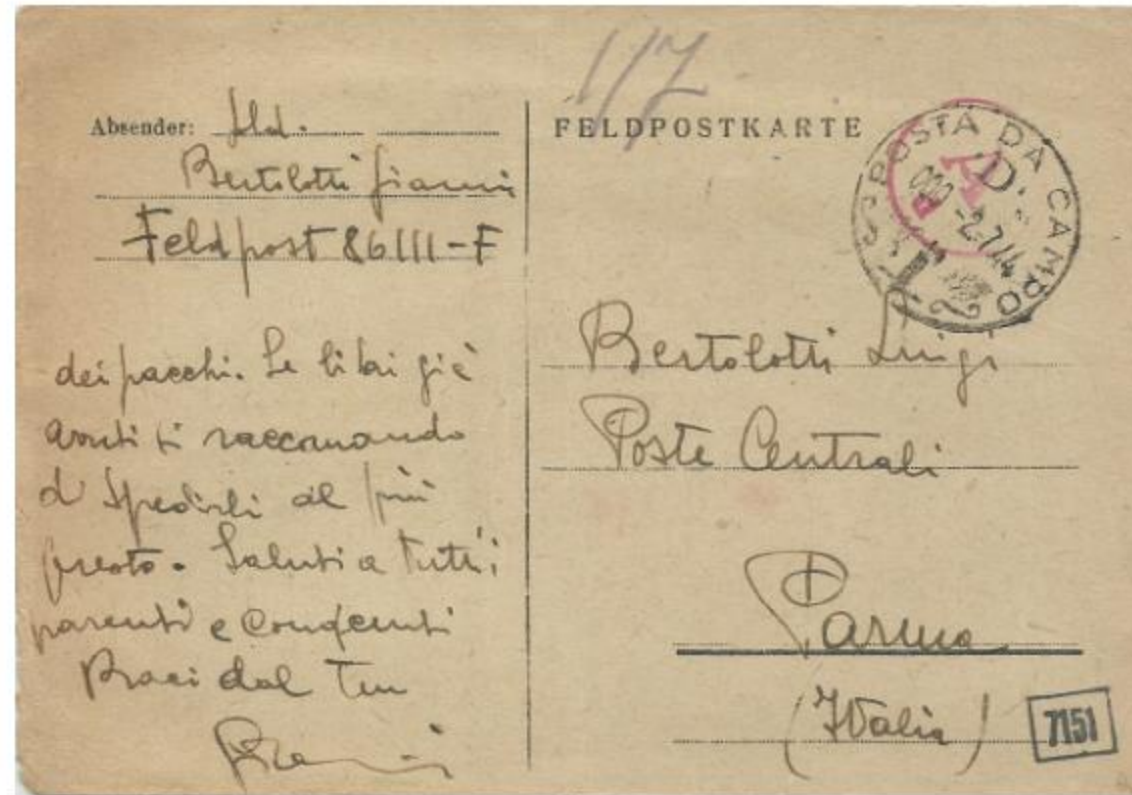 1/7
Absender: Sld.
Bertolotti Gianni
Feldpost 86111-F
dei pacchi. Se li hai già
avuti ti raccomando
di spedirli al più
presto. Saluti a tutti i
parenti e
Baci dal tuo
Gianni
FELDPOSTKARTE
POSTA DA CAMPO
-2.7.44
Bertolotti Luigi
Poste Centrali
Parma
(Italia)
7151